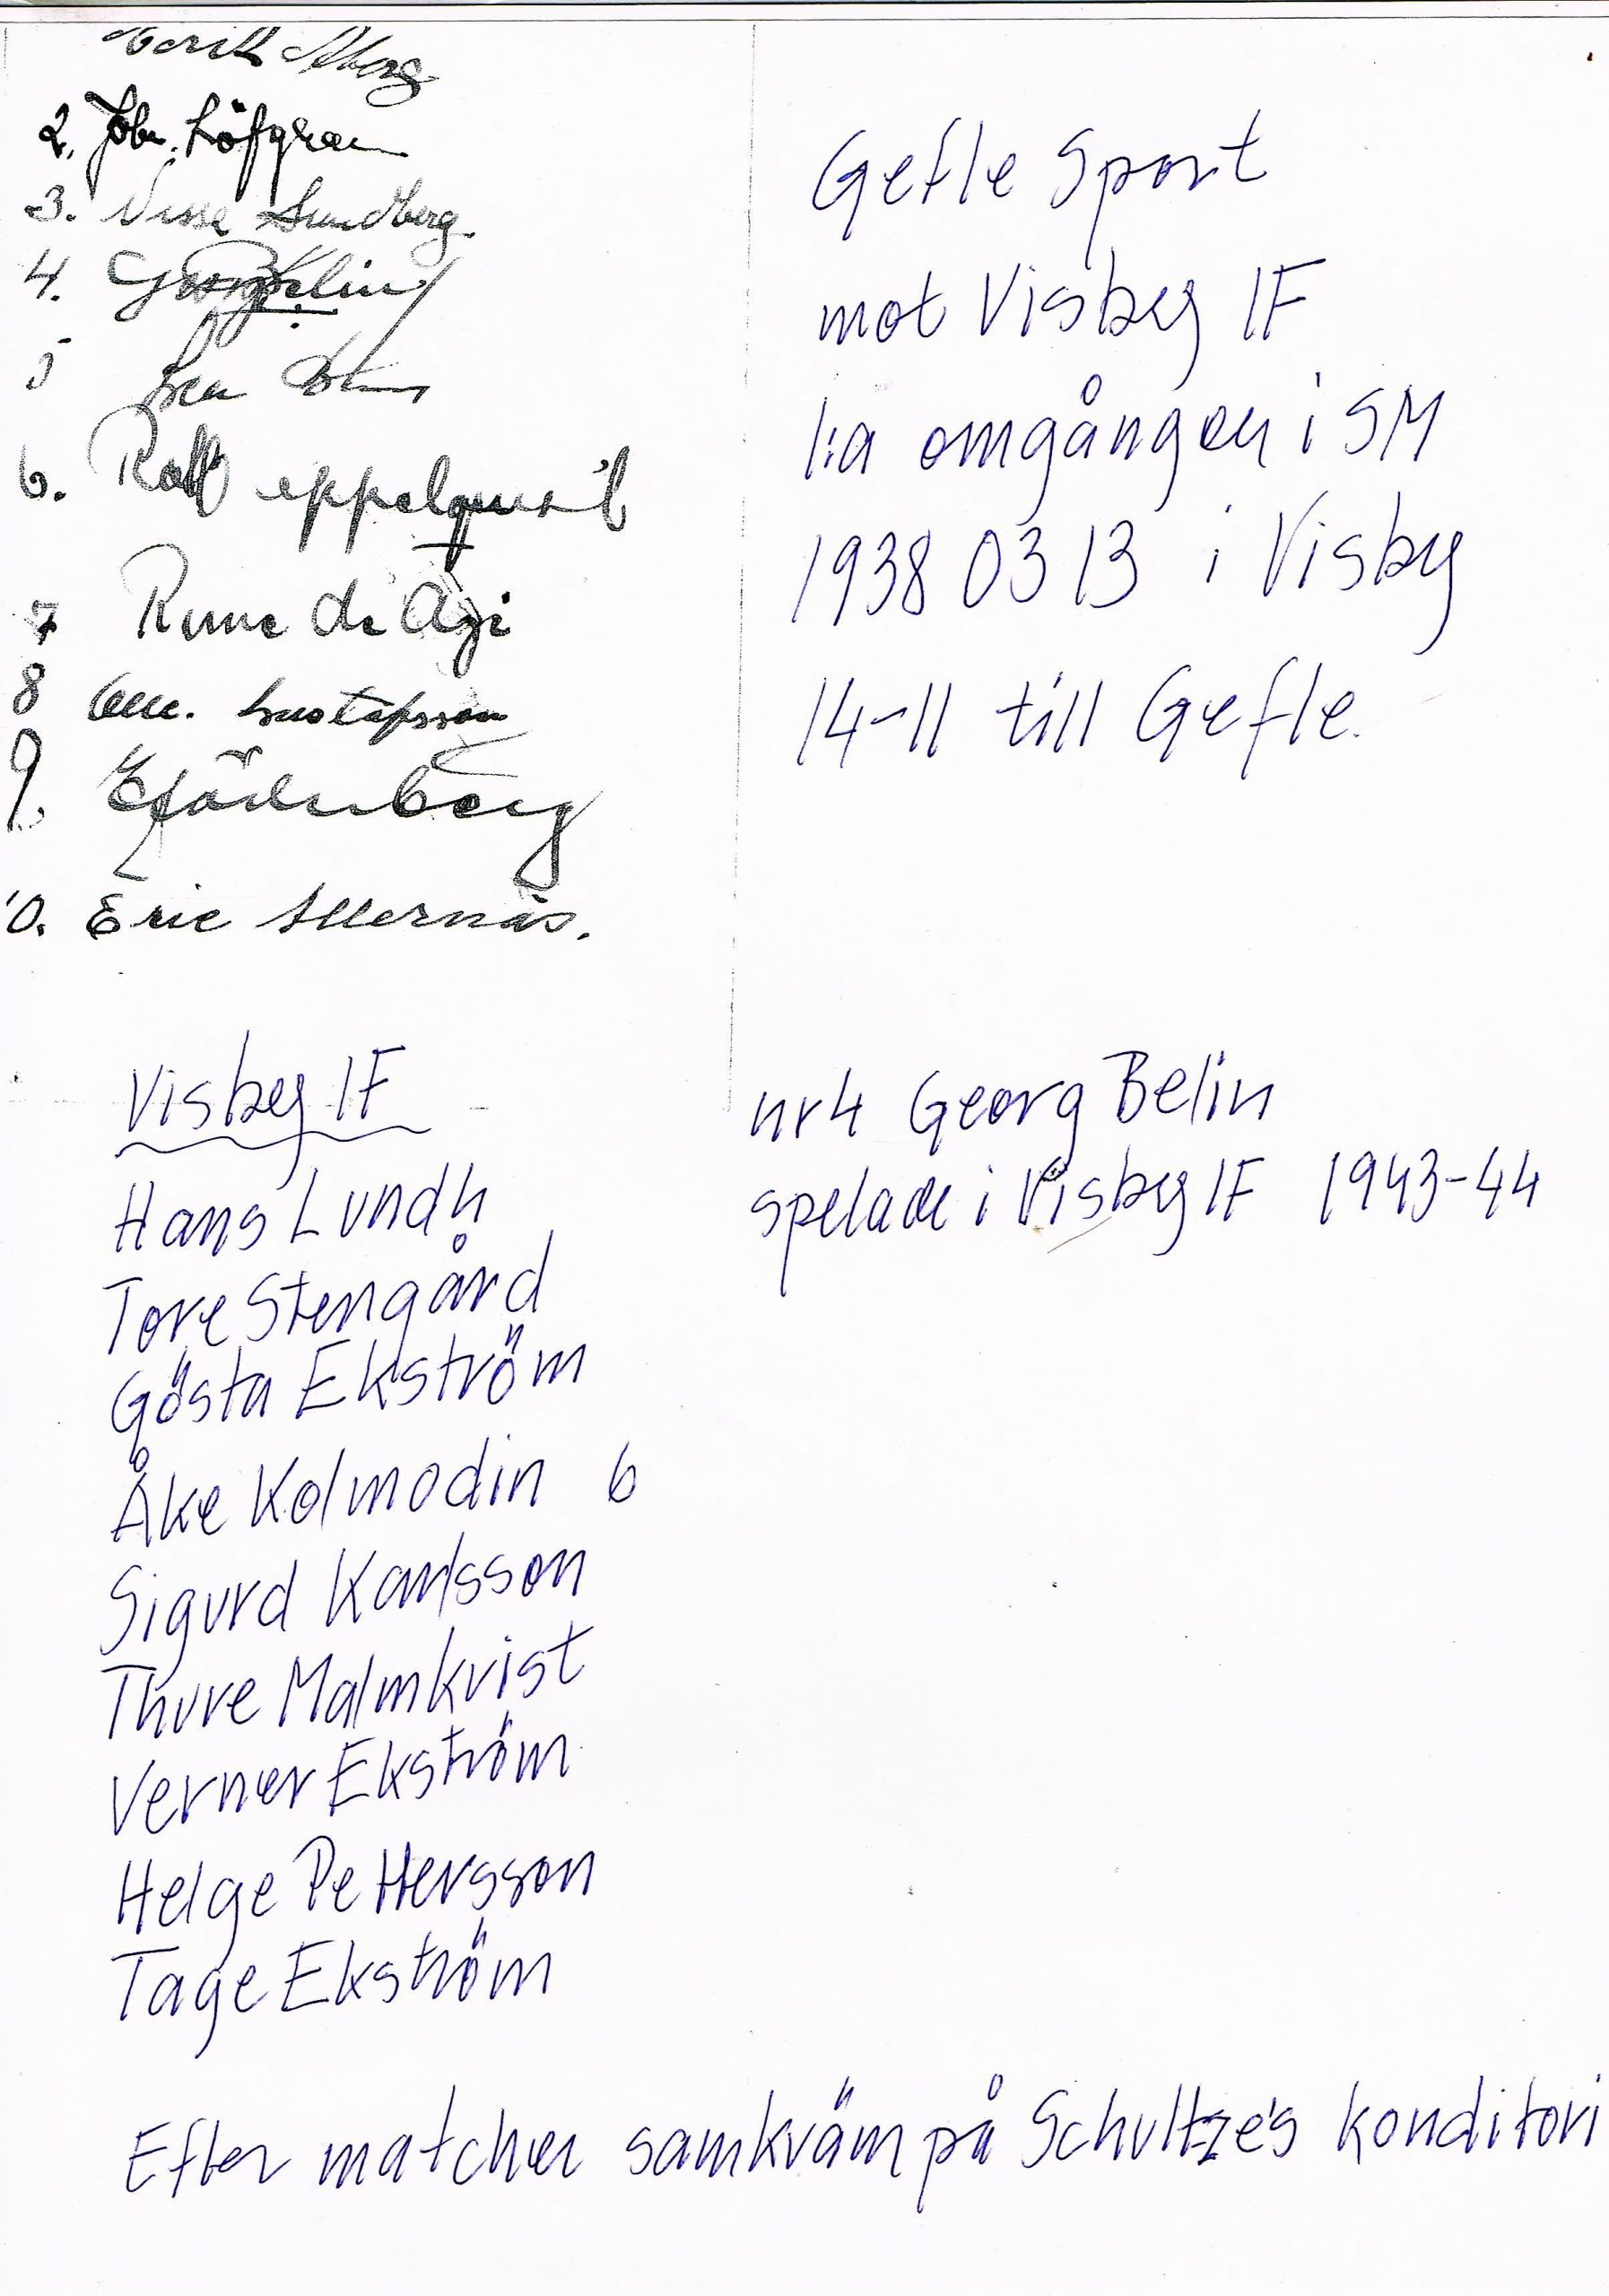 Åberg
2. Joh. Löfgren
3. Nisse Sundberg.
4. Georg Belin
5
6. Rolf eppelquist
7 Rune de Agi
8 Olle. Gustafsson
9. Söderberg
10. Eric Allernäs.
Gefle Sport
mot Visby IF
1:a omgången i SM
1938 03 13 i Visby
14-11 till Gefle.
Visby IF
Hans Lundh
Tore Stengård
Gösta Ekström
Åke Kolmodin 6
Sigurd Karlsson
Thure Malmkvist
Verner Ekström
Helge Pettersson
Tage Ekström
nr4 Georg Belin
spelade i Visby IF 1943-44
Efter matchen samkväm på Schultze's konditori